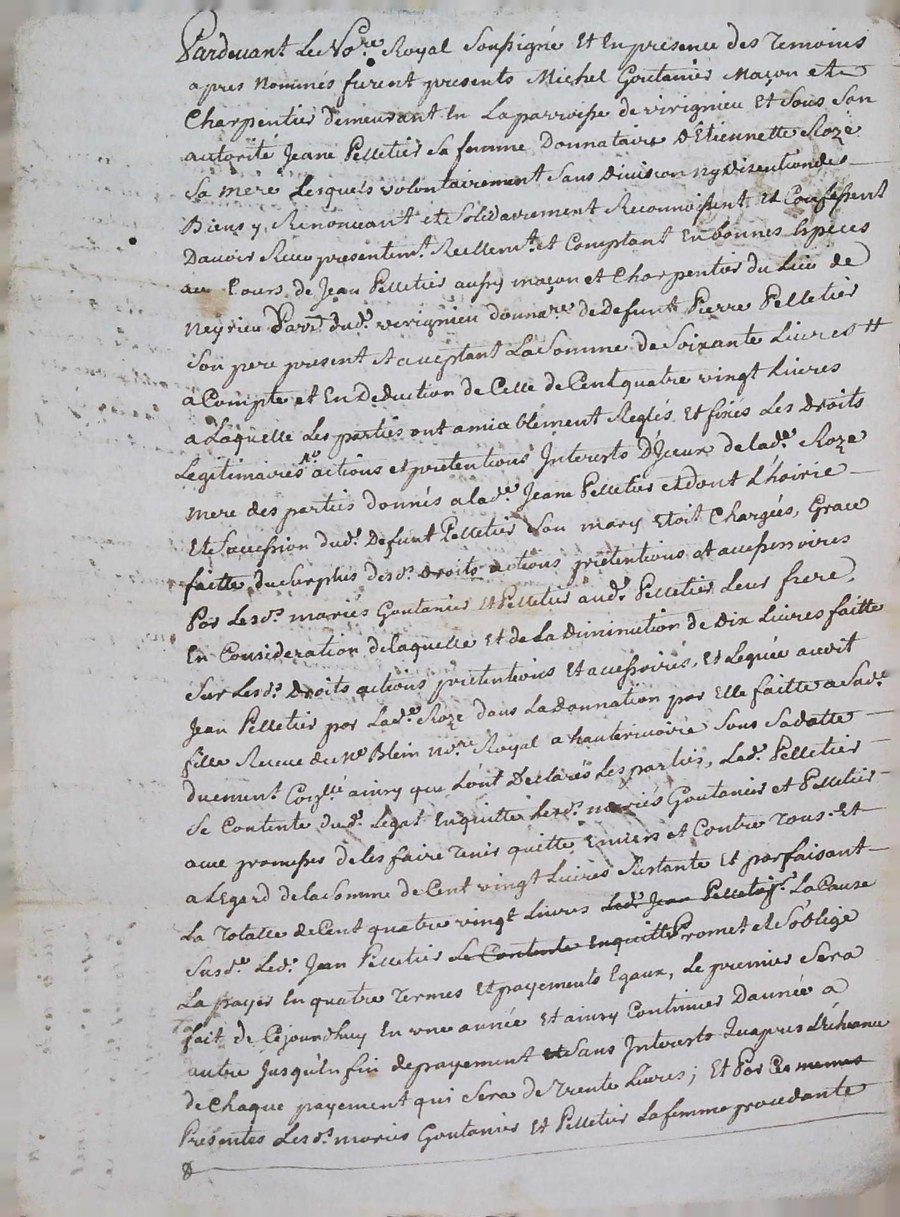 Pardevant Le No.re Royal Soussigné Et En presence des Temoins
apres Nommés furent presents Michel Goutanier Maçon et
Charpentier demeurant En La parroisse de virignieu Et Sous Son
autorité Jeane Pelletier Sa femme Donnataire D'Etiennette Roze
Sa mere Lesquels volontairement Sans Division ny Disention des
Biens y Renonceant et Solidairement Reconnoissent Et Confessent
Davoir Receu presentem.t Reellem.t et Comptant En bonnes Especes
au Cours de Jean Pelletier aussy maçon et Charpentier du Lieu de
Neyrieu Parr.e dud.t virignieu donna.re de defunt Pierre Pelletier
Son pere present et acceptant La Somme de Soixante Livres #
a Compte et En Deduction de Celle de Cent quatre vingt Livres
a Laquelle Les parties ont amiablement Reglés Et fixés Les Droits
Legitimaires actions et pretentions Interests D'Iceux de lad.e Roze
mere des parties donnés a lad.e Jeane Pelletier et dont L'hoirie
Et Succession dud.t Defunt Pelletier Son mary Etoit Chargées, Grace
faitte du Surplus desd.s Droits actions pretentions et accessoires
Par Lesd.s mariés Goutanier Et Pelletier aud.t Pelletier Leur frere,
En Consideration de laquelle Et de La Diminution de Dix Livres faitte
Sur Lesd.s Droits actions pretentions Et accessoires, Et Leguée audit
Jean Pelletier par Lad.e Roze dans La donnation par Elle faitte a Sad.e
fille Receue du M.e Blein No.re Royal a hauterivoire Sous Sa datte
duement Co.llé ainsy que L'ont Declarés Les parties, Led.t Pelletier
Se Contente dud.t Legat Enquitte Lesd.s mariés Goutanier et Pelletier
avec promesses de les faire Tenir quitte Envers et Contre Tous. Et
a L'Egard de la Somme de Cent vingt Livres Restante Et parfaisant
La Totalle de Cent quatre vingt Livres Led.t Jean Pelletier p.r La Cause
Susd.e Led.t Jean Pelletier Se Contente Enquitte Promet et S'oblige
La payer En quatre Termes Et payements Egaux, Le premier Sera
fait de Cejourdhuy En une année Et ainsy Continuer D'année a
autre Jusqu'en fin de payement et Sans Interests Qu'apres L'Echeance
de Chaque payement qui Sera de Trente Livres; Et Par Ces memes
Presentes Lesd.s mariés Goutanier Et Pelletier La femme procedante